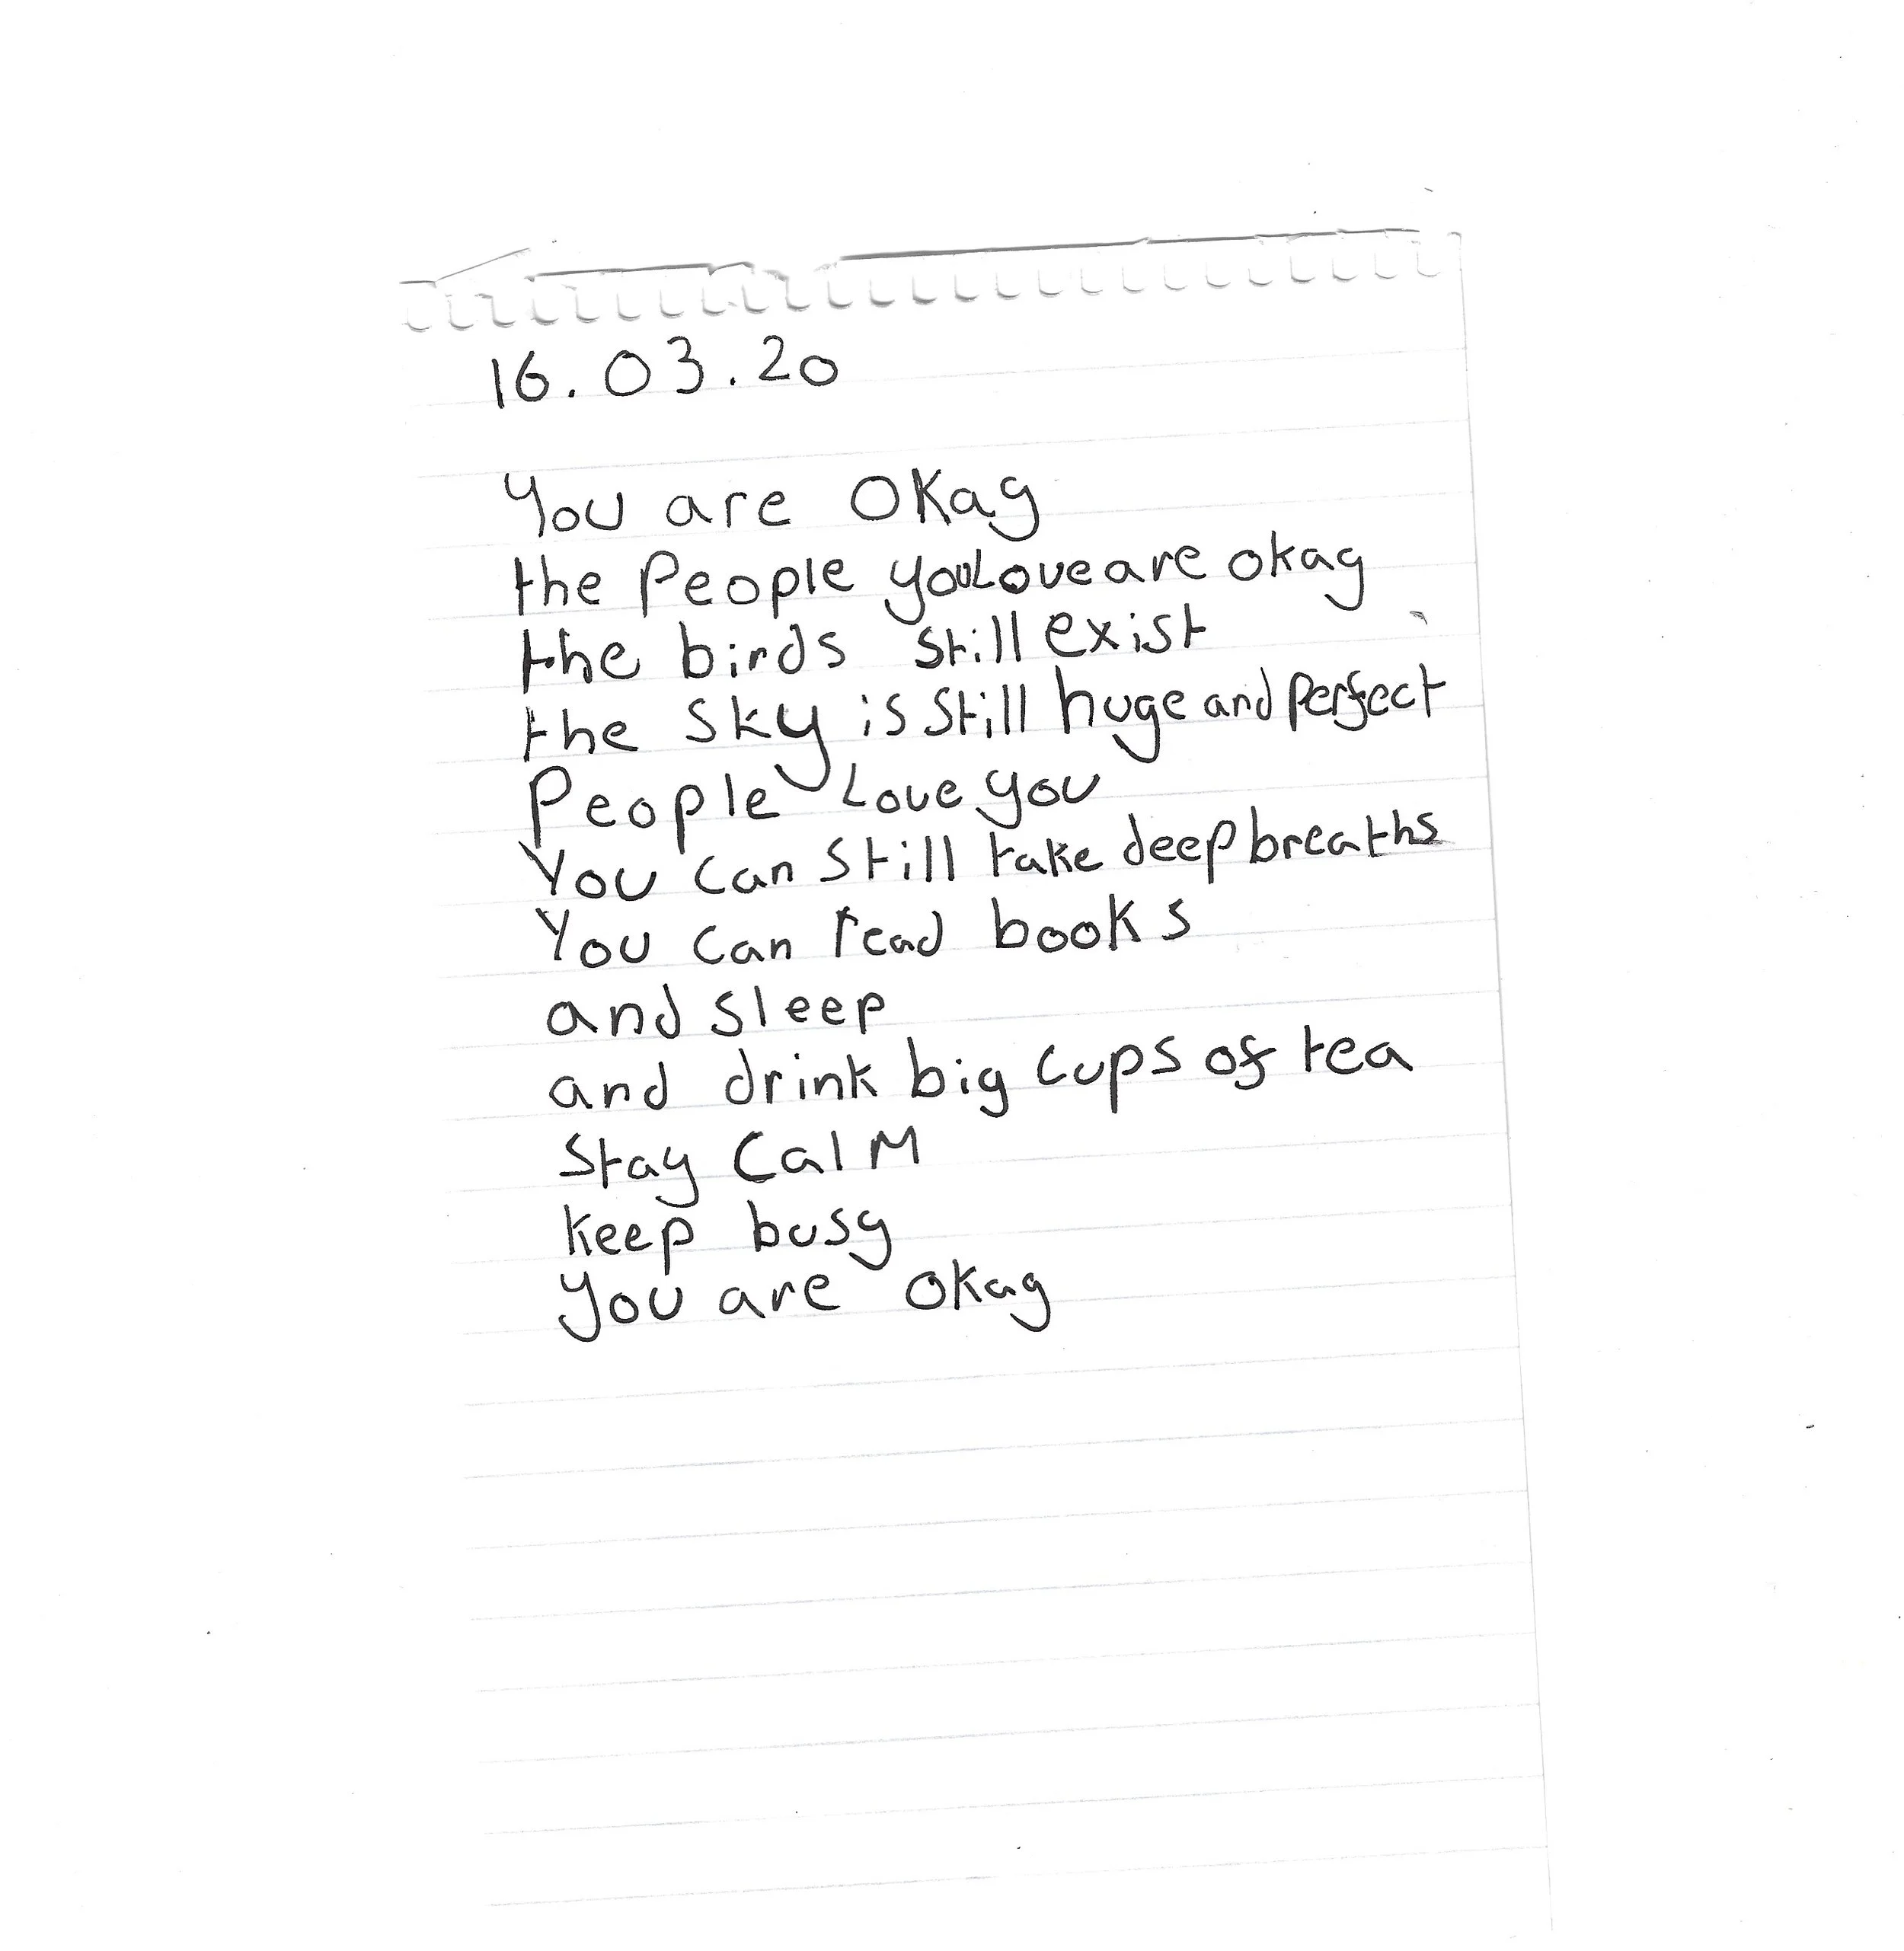 16.03.20
You are Okay
the People you Love are okay
the birds still exist
the sky is still huge and perfect
People Love you
You can still take deep breaths
You can read books
and sleep
and drink big cups of tea
Stay CalM
keep busy
you are okay